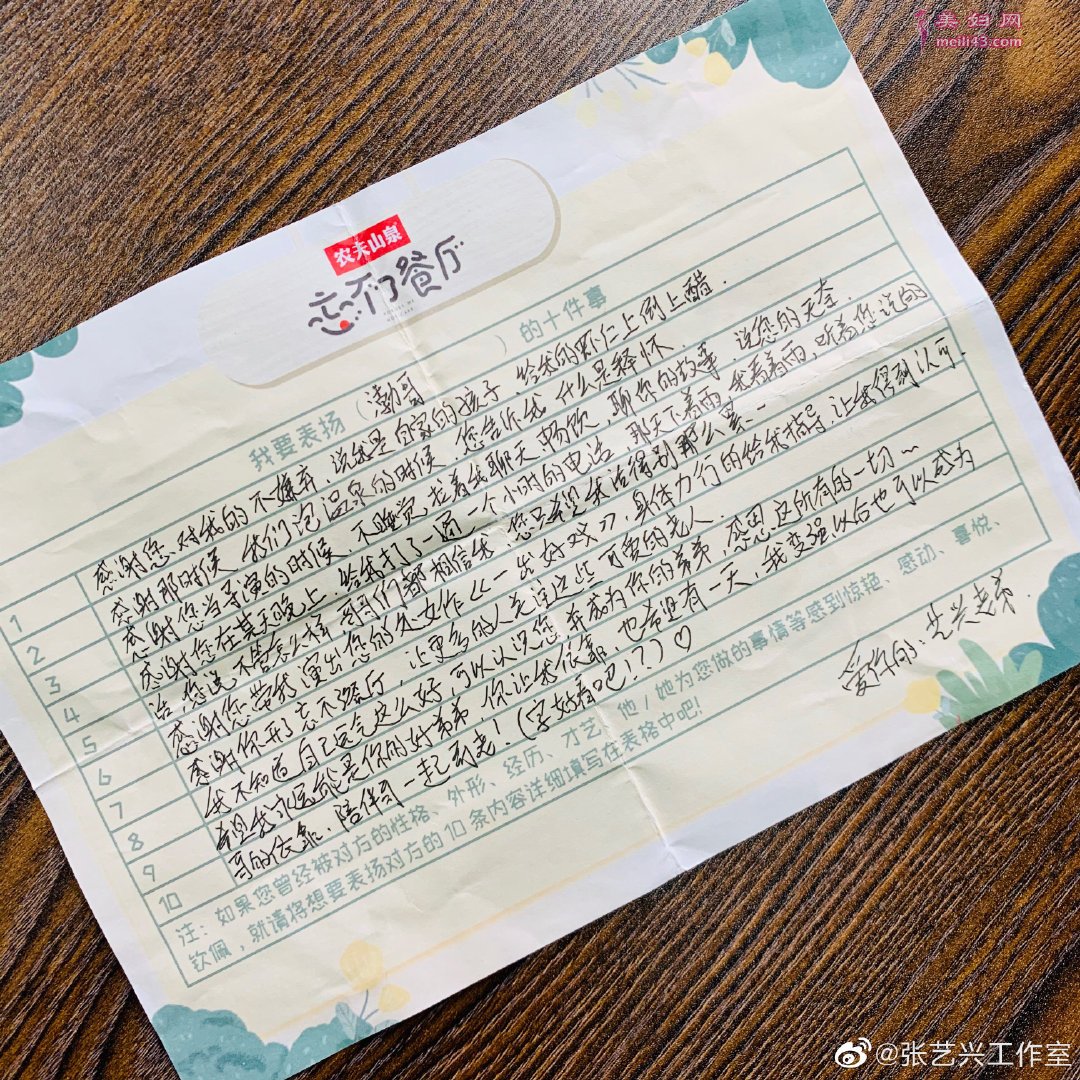 美妇网
meili43.com
农夫山泉
忘不了餐厅
我要表扬（渤哥）的十件事
1 感谢您对我的不嫌弃，说我是自家的孩子，给我的虾仁上倒上醋.
2 感谢那时候，我们泡温泉的时候，您告诉我，什么是释怀.
3 感谢您当导演的时候，不睡觉，拉着我聊天，畅饮，聊你的故事，说您的无奈.
4 感谢您在某天晚上，给我打了一通一个小时的电话，那天下着雨，我看着雨，听着您说的
5 话，您说不管怎么样，哥哥们都相信我，您只希望我活得别那么累..
6 感谢您带我演出您的处女作《一出好戏》，身体力行的给我指导，让我得到认可.
7 感谢你开了忘不了餐厅，让更多的人关注这些可爱的老人.
8 我不知道自己运气这么好，可以认识您，并成为你的弟弟，感恩这所有的一切～
9 希望我永远能是你的好弟弟，你让我依靠，也希望有一天，我变强以后也可以成为
10 哥的依靠，陪伴哥一起到老！（字好看吧！？）♡
注：如果您曾经被对方的性格、外形、经历、才艺、他/她为您做的事情等感到惊艳、感动、喜悦、
钦佩，就请将想要表扬对方的10条内容详细填写在表格中吧！
爱你的：艺兴老弟
@张艺兴工作室